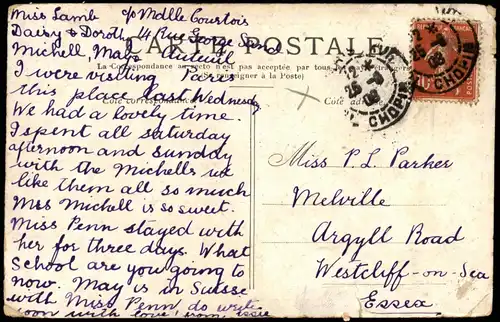 Miss Lamb c/o Mdlle Courtois
Daisy & Doroth 14 Rue George Sand
Michell, May & Auteuil
I were visiting Paris
this place last Wednesday
We had a lovely time.
I spent all saturday
afternoon and Sunday
with the Michells we
like them all so much
Mrs Michell is so sweet.
Miss Penn stayed with
her for three days. What
School are you going to
now. May is in Suisse
with Miss Penn, do write
soon with love from Essie
CARTE POSTALE
La Correspondance au recto n'est pas acceptée par tous les pays étrangers
(Se renseigner à la Poste)
Côté correspondance
Côté adresse
Miss P. L. Parker
Melville
Argyll Road
Westcliff-on-Sea
Essex
CHOPIN
CHOPIN